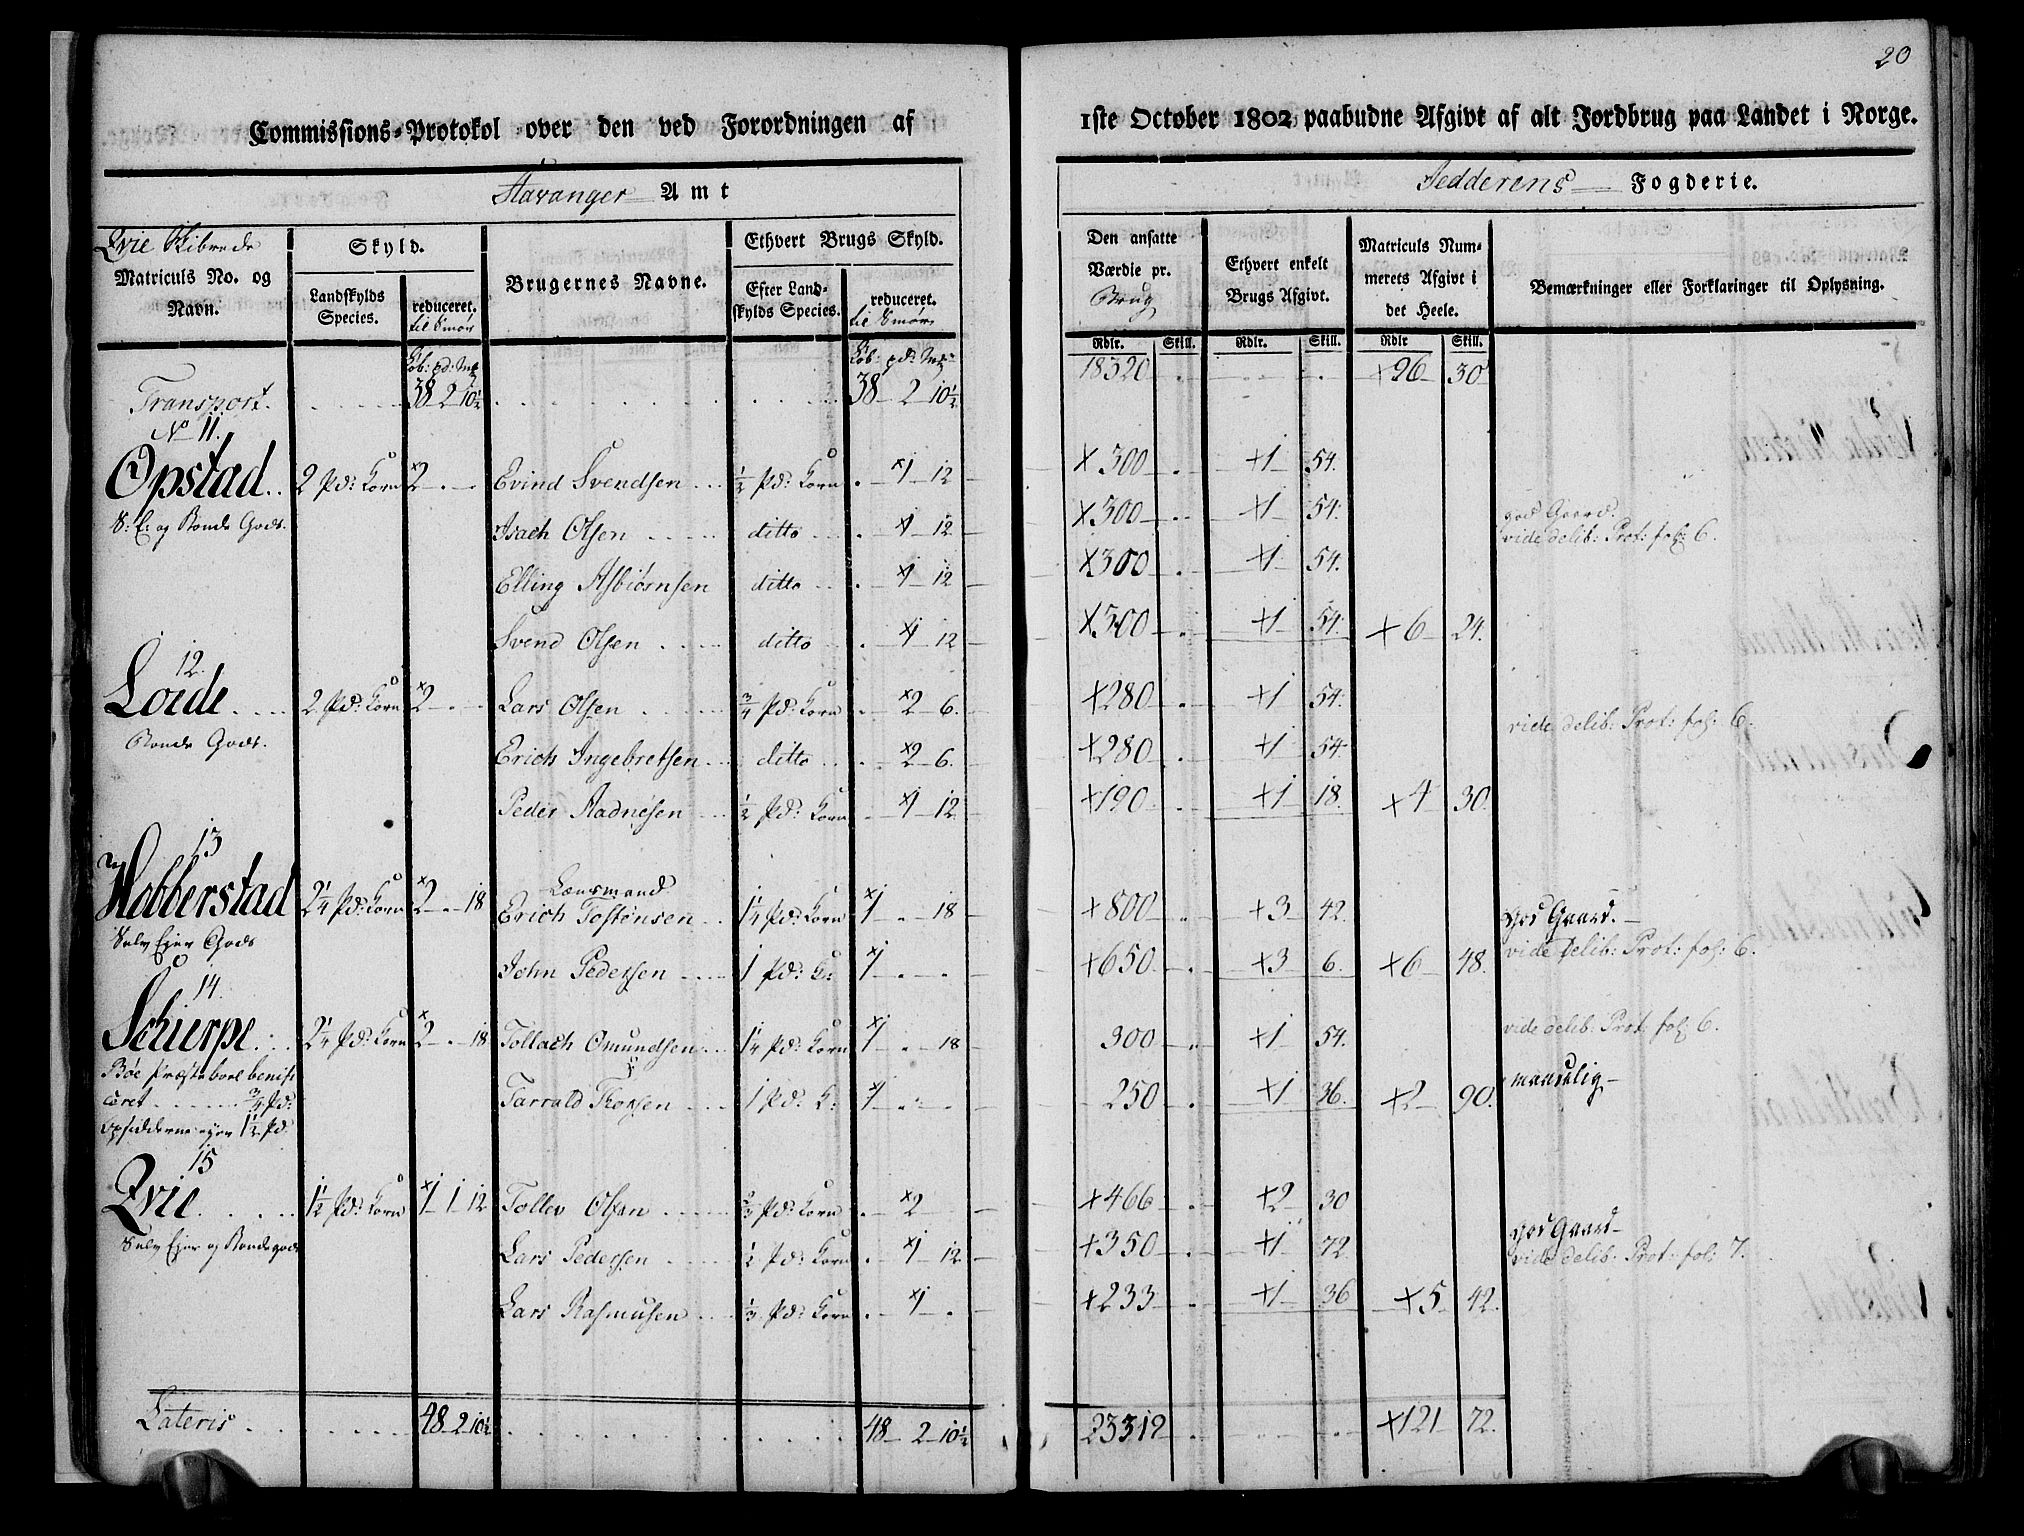 20
Commissions-Protokol over den ved Forordningen af 1ste October 1802 paabudne Afgivt af alt Jordbrug paa Landet i Norge.
Stavanger Amt Jedderens Fogderie.
Qvie Skibrede
Matriculs No. og Navn.
Skyld.
Landskylds Species.
reduceret. til Smör
Brugernes Navne.
Ethvert Brugs Skyld.
Efter Landskylds Species.
reduceret. til Smör
Den ansatte Værdie pr. Brug
Ethvert enkelt Brugs Afgivt.
Matriculs Nummerets Afgivt i det Heele.
Bemærkninger eller Forklaringer til Oplysning.
Rdlr. Skill. Rdlr. Skill. Rdlr Skill.
Transport. 38 2 10½ 38 2 10½ 18320 +96 30
No 11.
Opstad 2 Pd: Korn 2 Evind Svendsen ½ Pd: Korn 1 12 300 1 54.
S: E: og Bonde Gods. Isach Olsen ditto 1 12 300 1 54. god Gaard.
vide delib: Prot: fol: 6.
Elling Asbiörnsen ditto 1 12 300 1 54.
Svend Olsen ditto 1 12 300 1 54. 6 24.
12.
Loede 2 Pd: Korn 2 Lars Olsen ¾ Pd: Korn 2 6. 280 1 54.
vide delib: Prot: fol: 6.
Bonde Gods. Erich Ingebretsen ditto 2 6. 280 1 54
Peder Aadnesen ½ Pd: Korn 1 12 190 1 18. 4 30.
13
Hobberstad 2¼ Pd: Korn 2 18 Lænsmand Erich Tostensen 1¼ Pd: Korn 1 18 800 3 42. god Gaard.
Selv Ejer Gods vide delib: Prot: fol: 6.
John Pedersen 1 Pd: K: 1 650 3 6. 6 48.
14.
Schierpe 2¼ Pd: Korn 2 18 Tollach Omundsen 1¼ Pd: Korn 1 18 300 1 54. vide delib: Prot: fol: 6.
Böe Præstebord benificeret ¾ Pd: maadelig
Tarrald Thorsen 1 Pd: K: 1 250 1 36. 2 90.
opsidderne ejer 1½ Pd
15
Qvie 1½ Pd: Korn 1 1 12 Tollev Olsen ⅔ Pd: Korn 2 466 2 30
Selv Ejer og Bonde gods Lars Pedersen ½ Pd: Korn 1 12 350 1 72. god Gaard
vide delib: Prot: fol: 7.
Lars Rasmusen ⅓ Pd: Korn 1 233 1 36 5 42.
Lateris 48 2 10½ 48 2 10½ 23319 121 72.